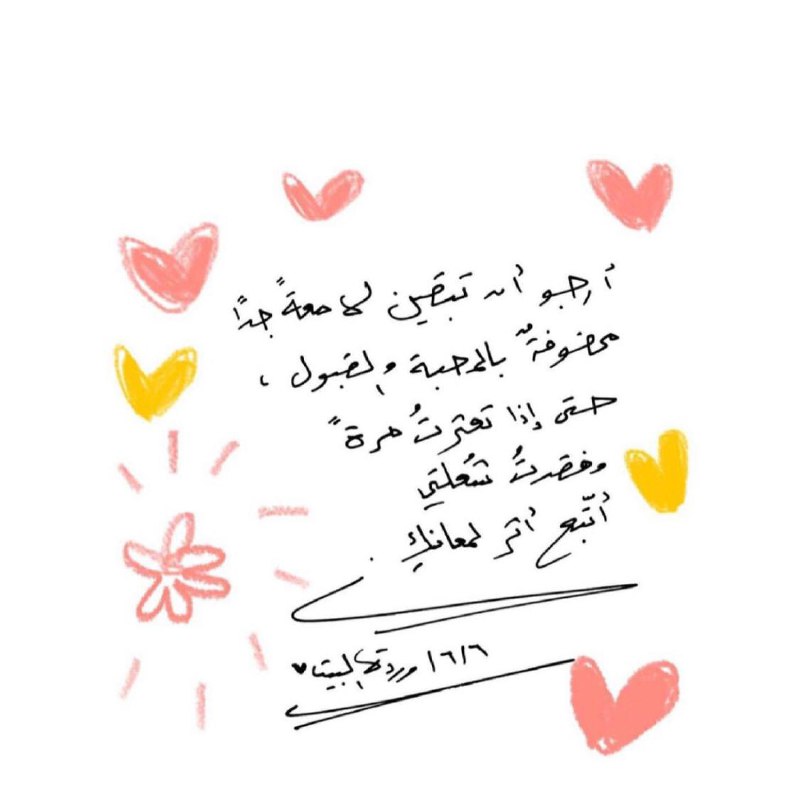 أرجو أن تبقين لامعةً جدًا
محفوفةٌ بالمحبة والقبول ،
حتى إذا تعثرتُ مرة ً
وفقدتُ شُعلتي
أتّبع أثر لمعانكِ .
٦/٦ / وردة البيت